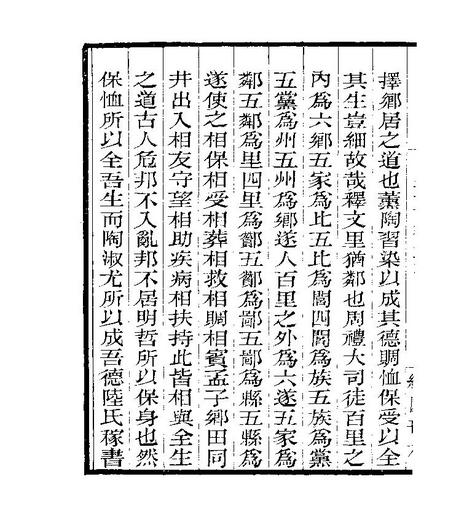 擇鄉居之道也薰陶習染以成其德賙恤保受以全
其生豈細故哉釋文里猶鄰也周禮大司徒百里之
內爲六鄉五家爲比五比爲閭四閭爲族五族爲黨
五黨爲州五州爲鄉遂人百里之外爲六遂五家爲
鄰五鄰爲里四里爲酇五酇爲鄙五鄙爲縣五縣爲
遂使之相保相受相葬相救相賙相賓孟子鄉田同
井出入相友守望相助疾病相扶持此皆相與全生
之道古人危邦不入亂邦不居明哲所以保身也然
保恤所以全吾生而陶淑尤所以成吾德陸氏稼書